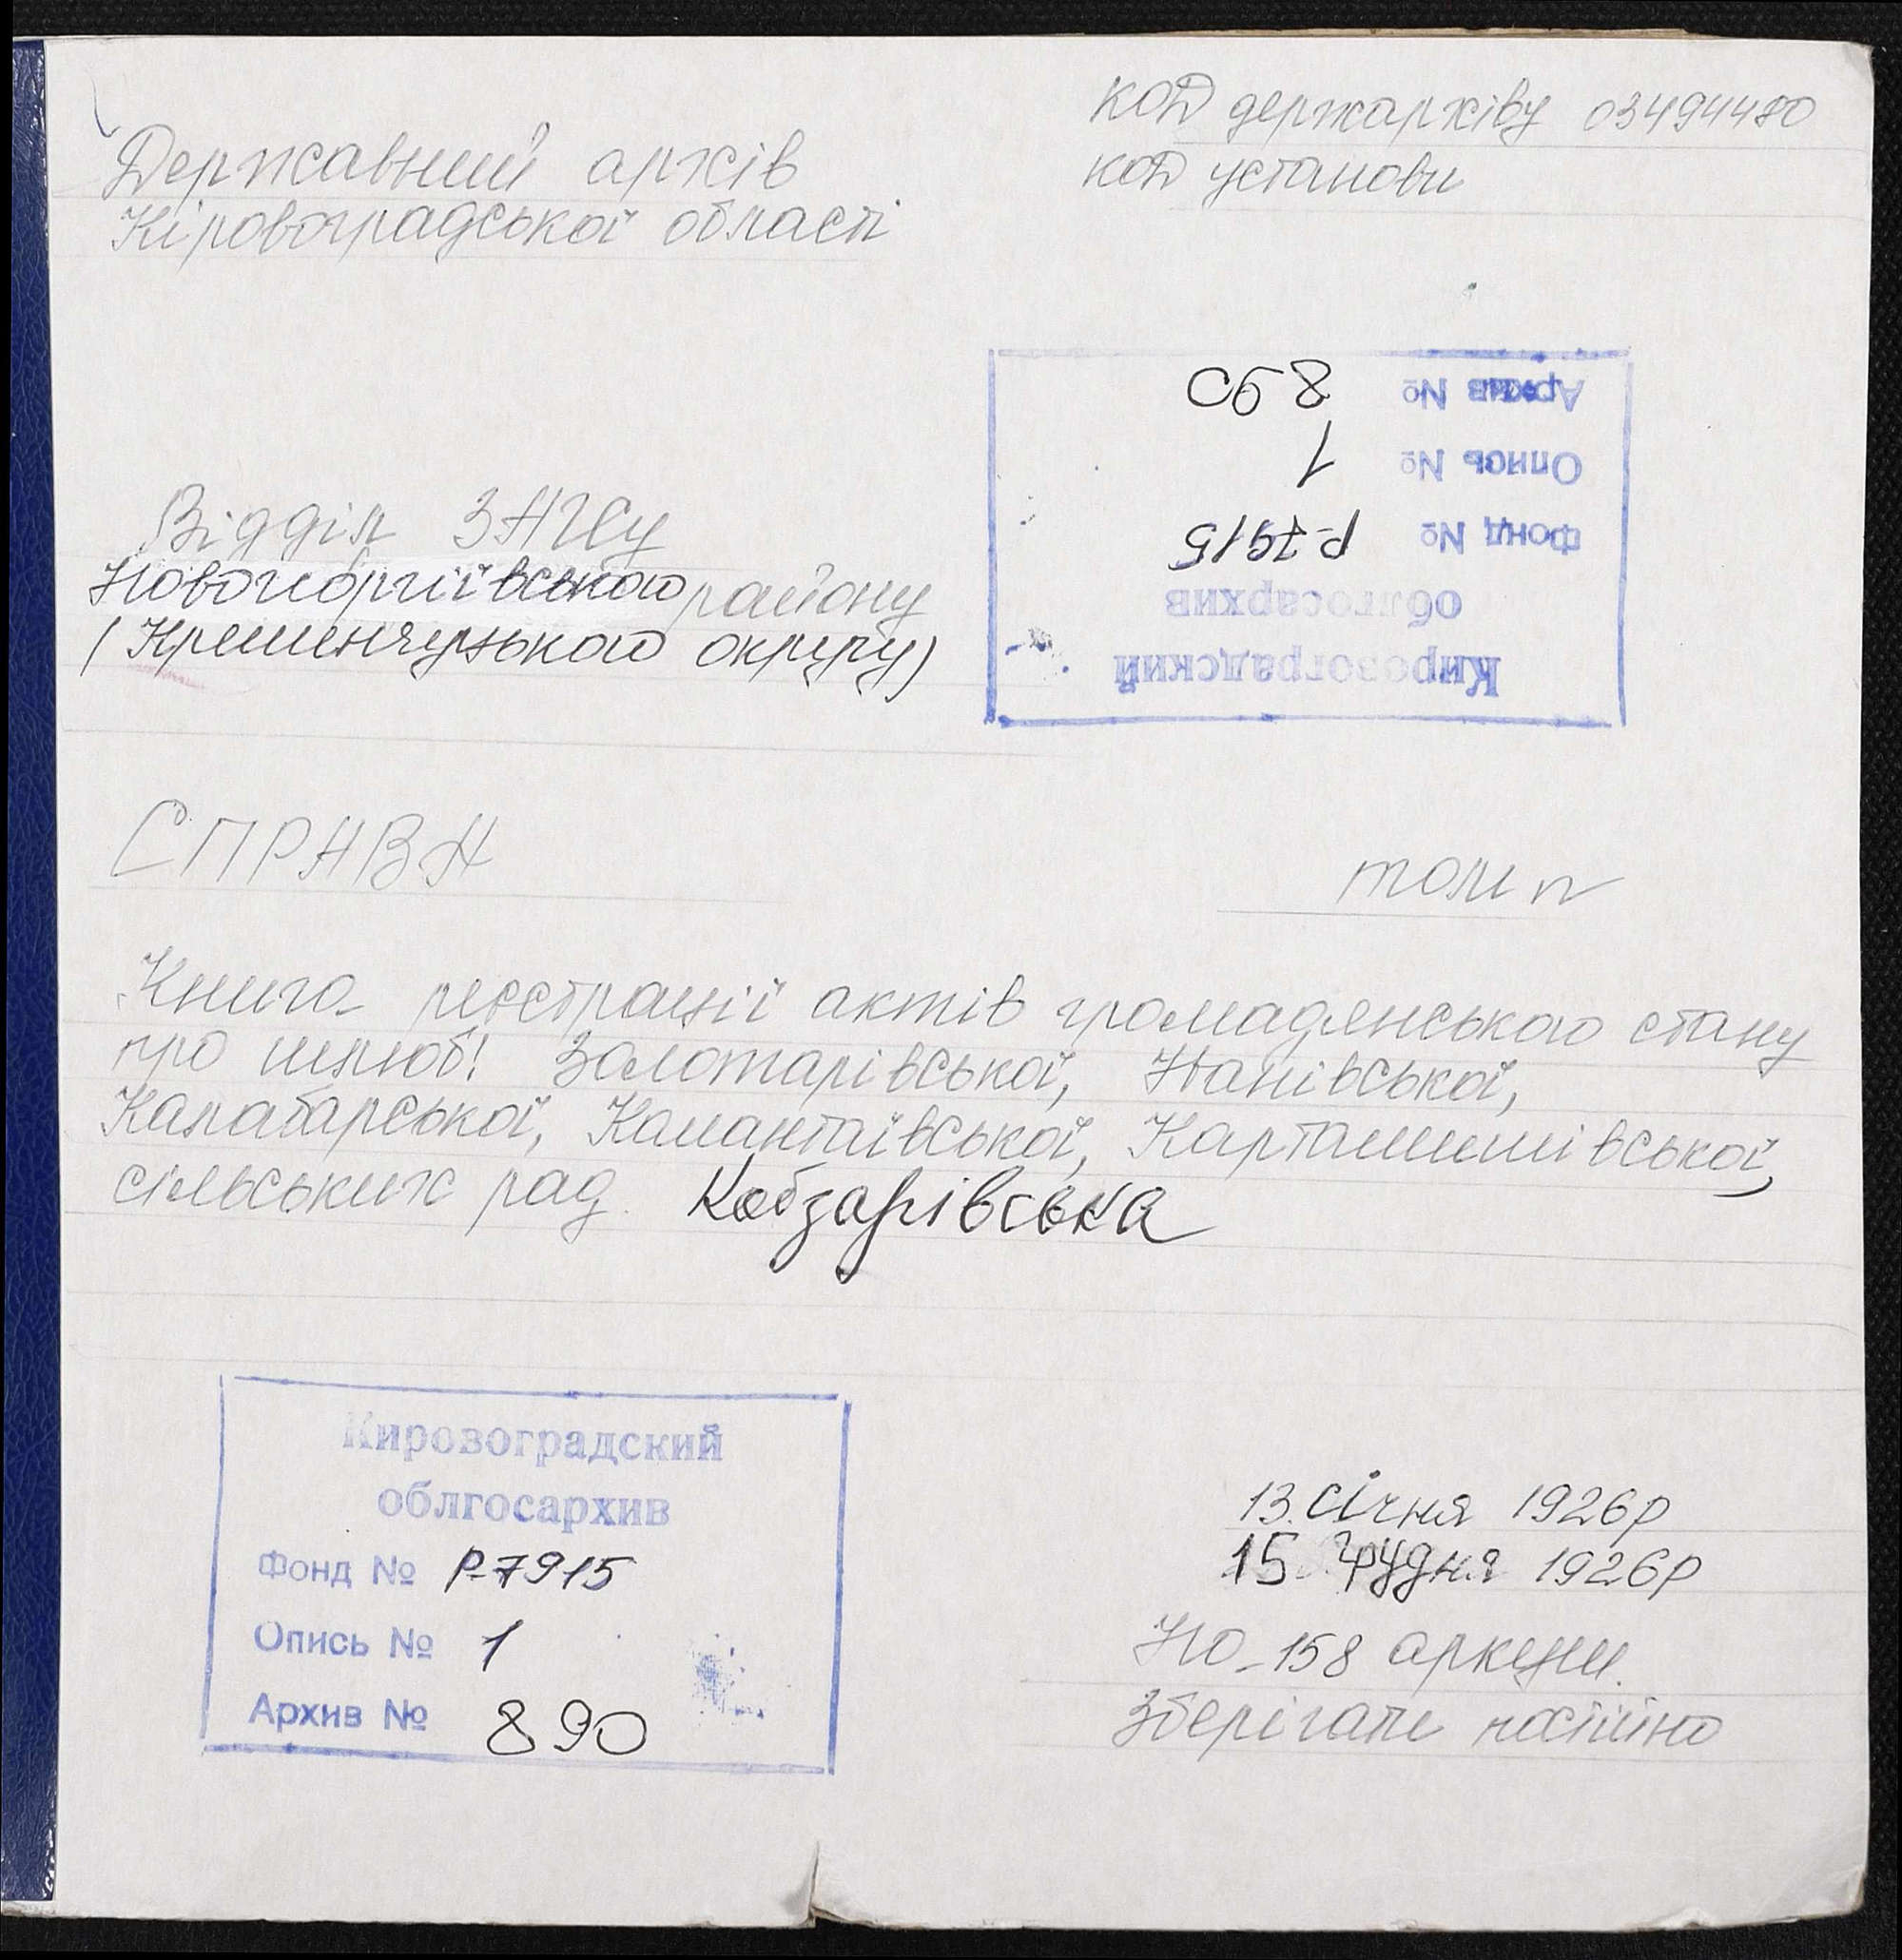 код держархіву 03494480
код установи
Державний архів
Кіровоградської області
Кировоградский
облгосархив
Фонд № Р-7915
Опись № 1
Архив № 890
Відділ ЗАГСу
Новогеоргіївського району
(Кременчузького округу)
СПРАВА
том n
Книга реєстрації актів громадянського стану
про шлюб! Золотарівської, Іванівської,
Калабарської, Камантаївської, Карташишівської,
сільських рад. Кобзарівська
Кировоградский
облгосархив
Фонд № Р-7915
Опись № 1
Архив № 890
13 січня 1926р
15 грудня 1926р
На 158 аркуши.
Зберігати постійно